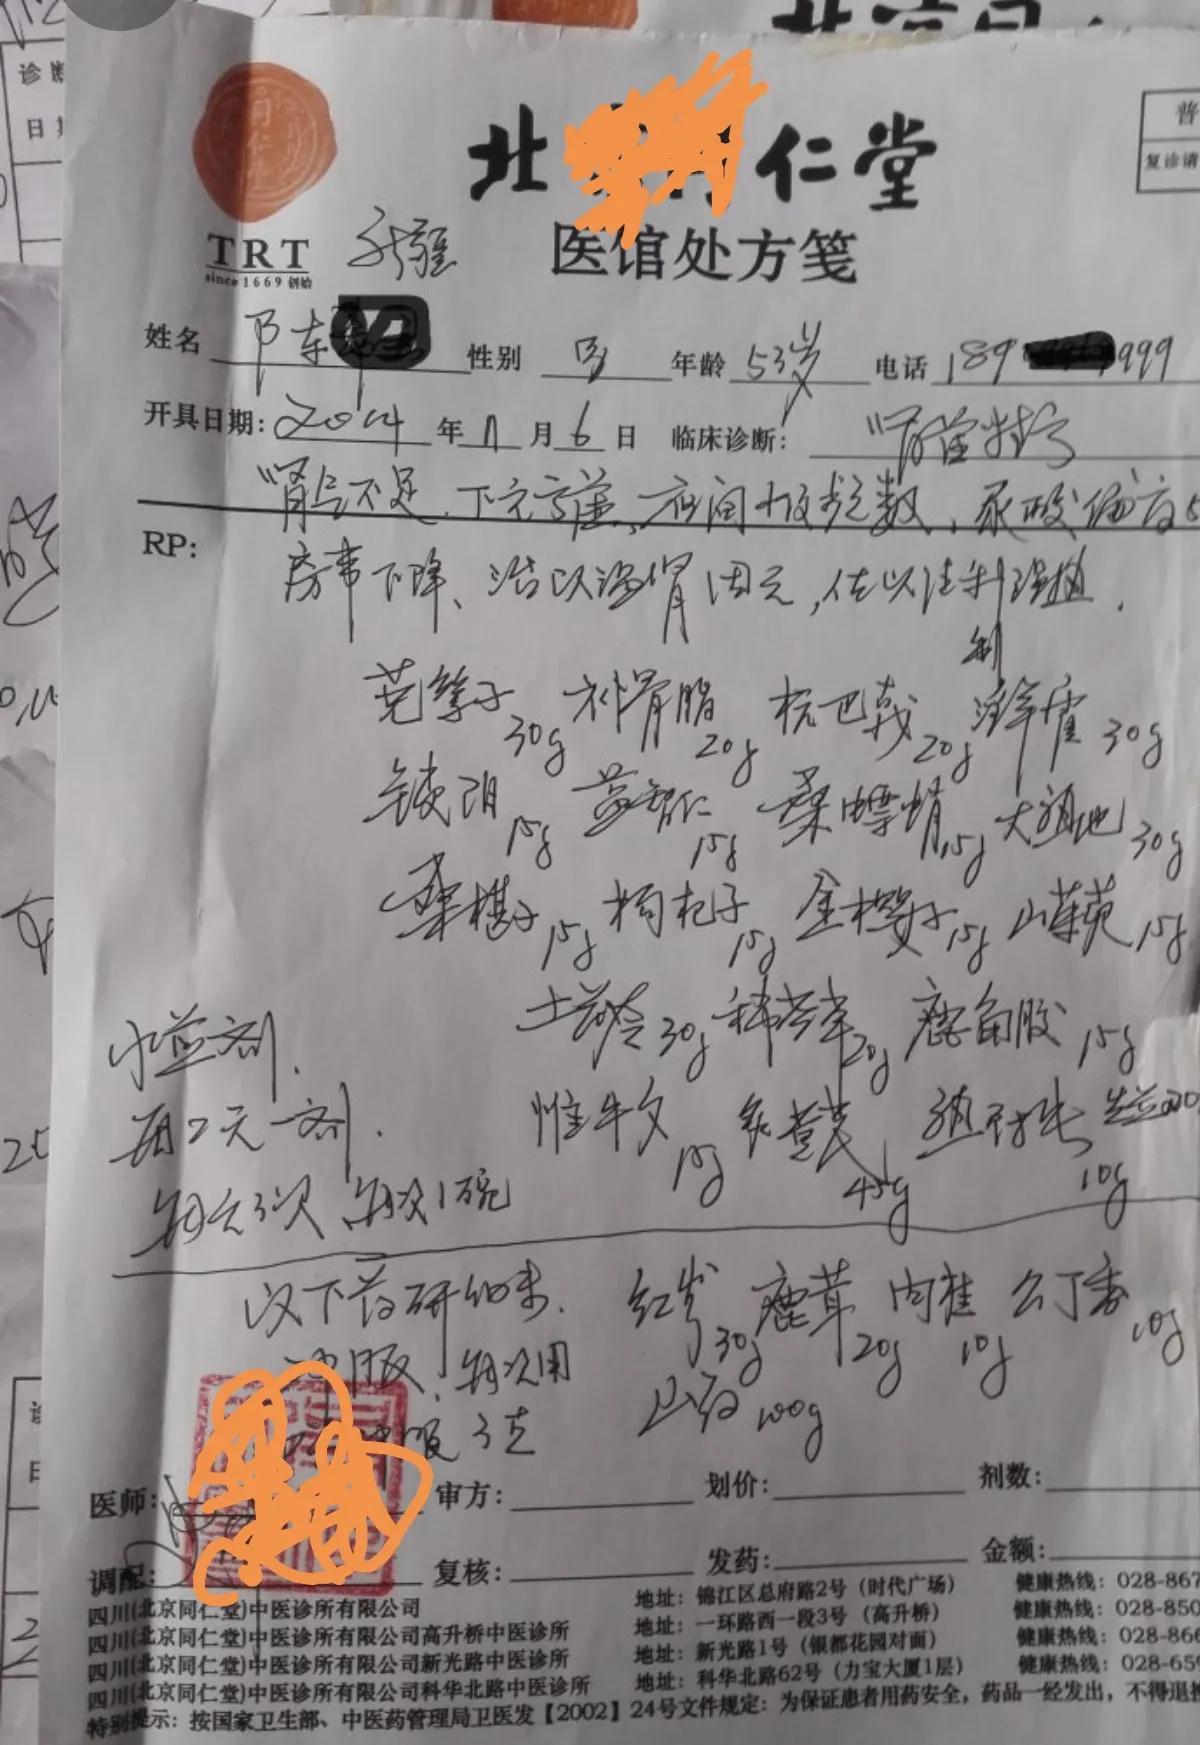 诊断
日期
普
复诊请
北 仁堂
TRT
since 1669 创始
新疆
医馆处方笺
姓名 东 性别 男 年龄 53岁 电话 189 999
开具日期: 2014 年 11 月 6 日 临床诊断:
肾气不足,下元亏虚,夜间小便尤数,尿酸偏高
RP:
房事下降、治以温肾固元,佐以
制
菟丝子30g 补骨脂20g 杭巴戟20g 淫羊藿30g
锁阳15g 益智仁15g 桑螵蛸15g 大熟地30g
桑椹子15g 枸杞子15g 金樱子15g 山茱萸15g
土茯苓30g 豨莶草20g 鹿角胶15g
水煎剂. 淮牛夕15g 炙黄芪45g 10g
每2天一剂.
每天3次 每次1碗
以下药研细末. 红参30g 鹿茸20g 肉桂10g 公丁香10g
冲服,每次用 山药100g
服 3克
医师: 审方: 划价: 剂数:
调配: 复核: 发药: 金额:
四川(北京同仁堂)中医诊所有限公司 地址:锦江区总府路2号(时代广场) 健康热线:028-867
四川(北京同仁堂)中医诊所有限公司高升桥中医诊所 地址:一环路西一段3号(高升桥) 健康热线:028-850
四川(北京同仁堂)中医诊所有限公司新光路中医诊所 地址:新光路1号(银都花园对面) 健康热线:028-866
四川(北京同仁堂)中医诊所有限公司科华北路中医诊所 地址:科华北路62号(力宝大厦1层) 健康热线:028-659
特别提示:按国家卫生部、中医药管理局卫医发【2002】24号文件规定:为保证患者用药安全,药品一经发出,不得退换